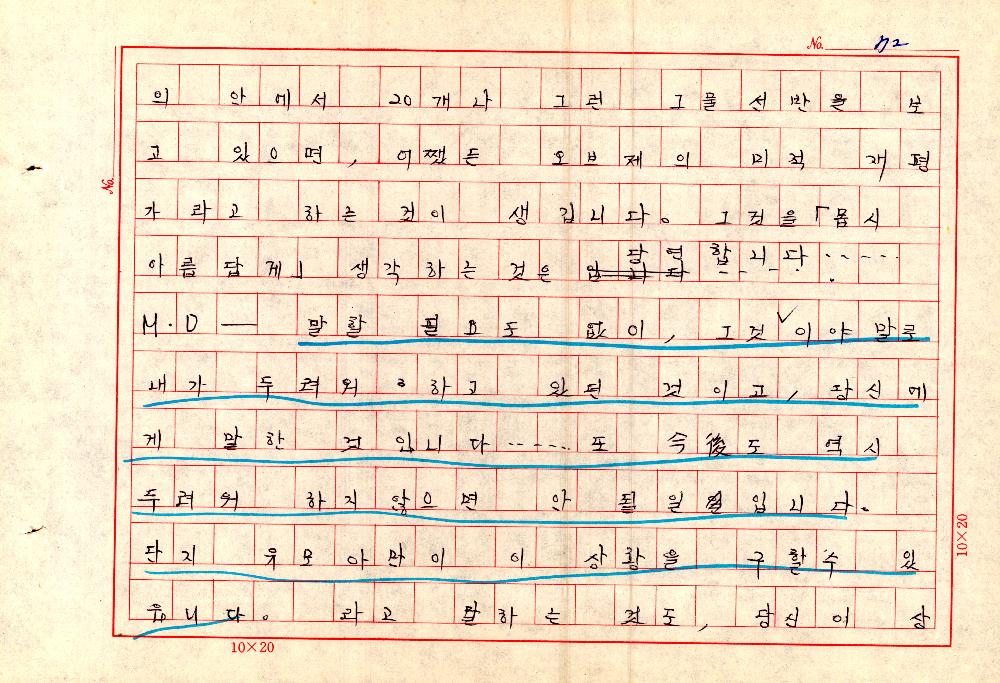 No. 72
의 안에서 20개나 그런 그물 선반을 보
고 있으면, 어쨌든 오브제의 미적 재평
가 라고 하는 것이 생깁니다. 그것을「몹시
아름답게」 생각하는 것은 당연합니다‥‥‥
M·D ― 말할 필요도 없이, 그것이야말로
내가 두려워하고 있던 것이고, 당신에
게 말한 것입니다‥‥‥또 今後도 역시
두려워 하지 않으면 안 될 일 입니다.
단지 유모아만이 이 상황을 구할수 있
읍니다. 라고 말하는 것도, 당신이 상
No.
10×20
10×20